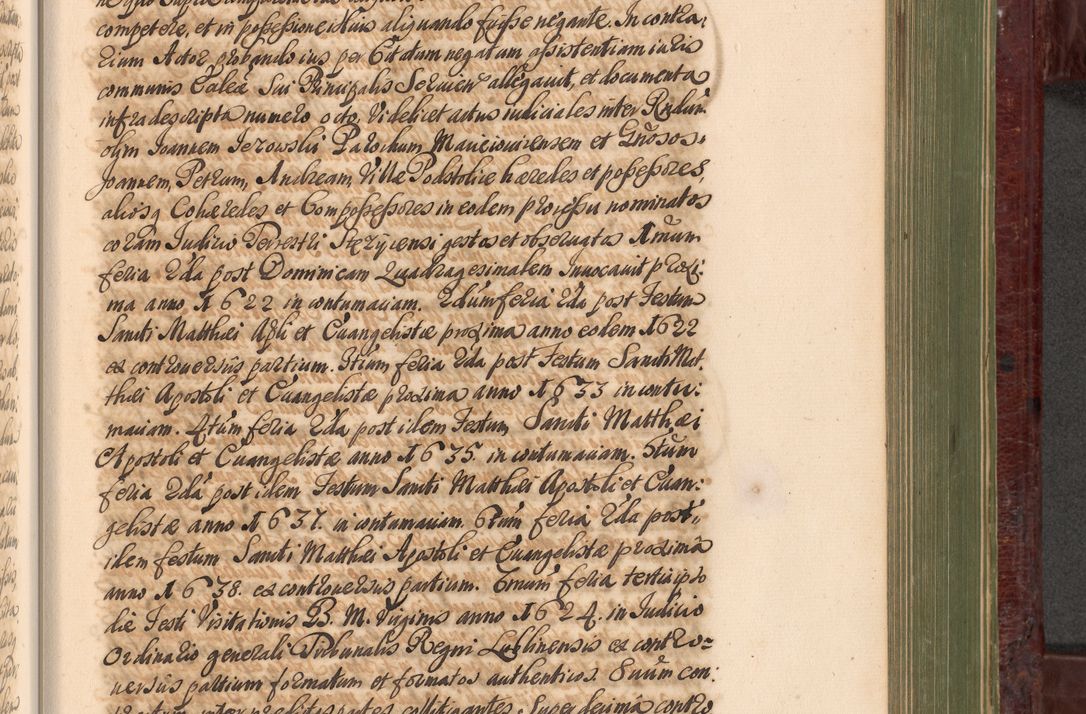 competere, et in possessione illius aliquando fuisse negante. In contra:
rium Actor probando ius per Citatum negatum assistentiam iuris
communis Taleæ Sui Principalis Servien allegavit, et documenta
infra descripta numero octo. Videlicet actus iudiciales inter Rndum
olim Joannem Jezowski Parochum Maucioviensem et Gnosos
Joannem, Petrum, Andream, Villæ Podstolice hæredes et possessores,
aliosq Cohæredes et Compossessores in eodem processu nominatos
coram Judicio Terrestri Stęzycensi gestos et observatos 1mum
feria 2da post Dominicam Quadragesimalem Invocavit proxi:
ma anno 1622 in contumaciam. 2dum feria 2da post Festum
Sancti Matthæi Apli et Evangelistæ proxima anno eodem 1622
ex controversiis partium. 3tium feria 2da post Festum Sancti Mat
thæi Apostoli et Evangelistæ proxima anno 1633 in contu:
maciam. 4tum feria 2da post idem Festum Sancti Matthæi
Apostoli et Evangelistæ anno 1635. in contumaciam. 5tum
feria 2da post idem Festum Sancti Matthæi Apostoli et Evan:
gelistæ anno 1637. in contumaciam. 6tum feria 2da post
idem festum Sancti Matthæi Apostoli et Evangelistæ proxima
anno 1638. ex controversiis partium. 7mum feria tertia ipso
die Festi Visitationis B. M. Virginis anno 1624. in Judicio
Ordinario generali Tribunalis Regni Lublinensis ex contro=
versiis partium formatum et formatos authenticos. 8vum con:
inter prædictas partes collitigantes. Super decima contro